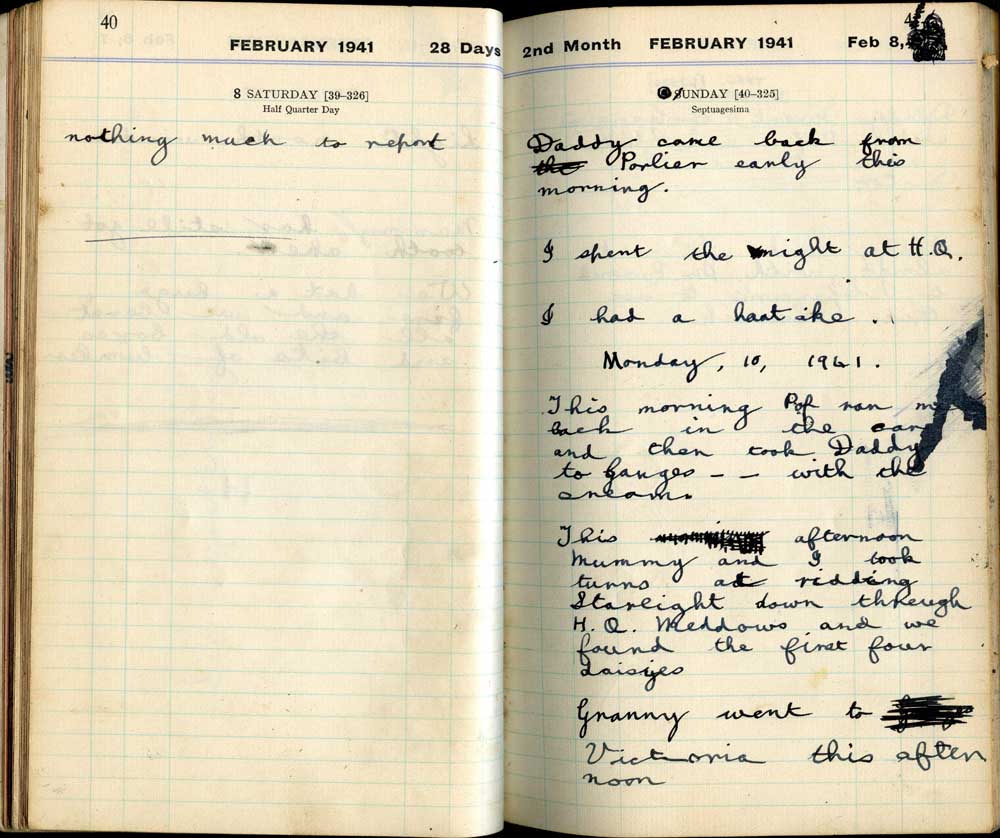 40
FEBRUARY 1941 28 Days
8 SATURDAY [39–326]
Half Quarter Day
nothing much to report
2nd Month FEBRUARY 1941 Feb 8,
SUNDAY [40–325]
Septuagesima
Daddy came back from
the Porlier early this
morning.
I spent the night at H.Q.
I had a haat ake .
Monday, 10, 1941.
This morning Pop ran m
back in the car
and then took Daddy
to Ganges – – with the
cream.
This afternoon
Mummy and I took
turns at ridding
Starlight down through
H.Q. Meddows and we
found the first four
daisyes
Granny went to
Victoria this after
noon